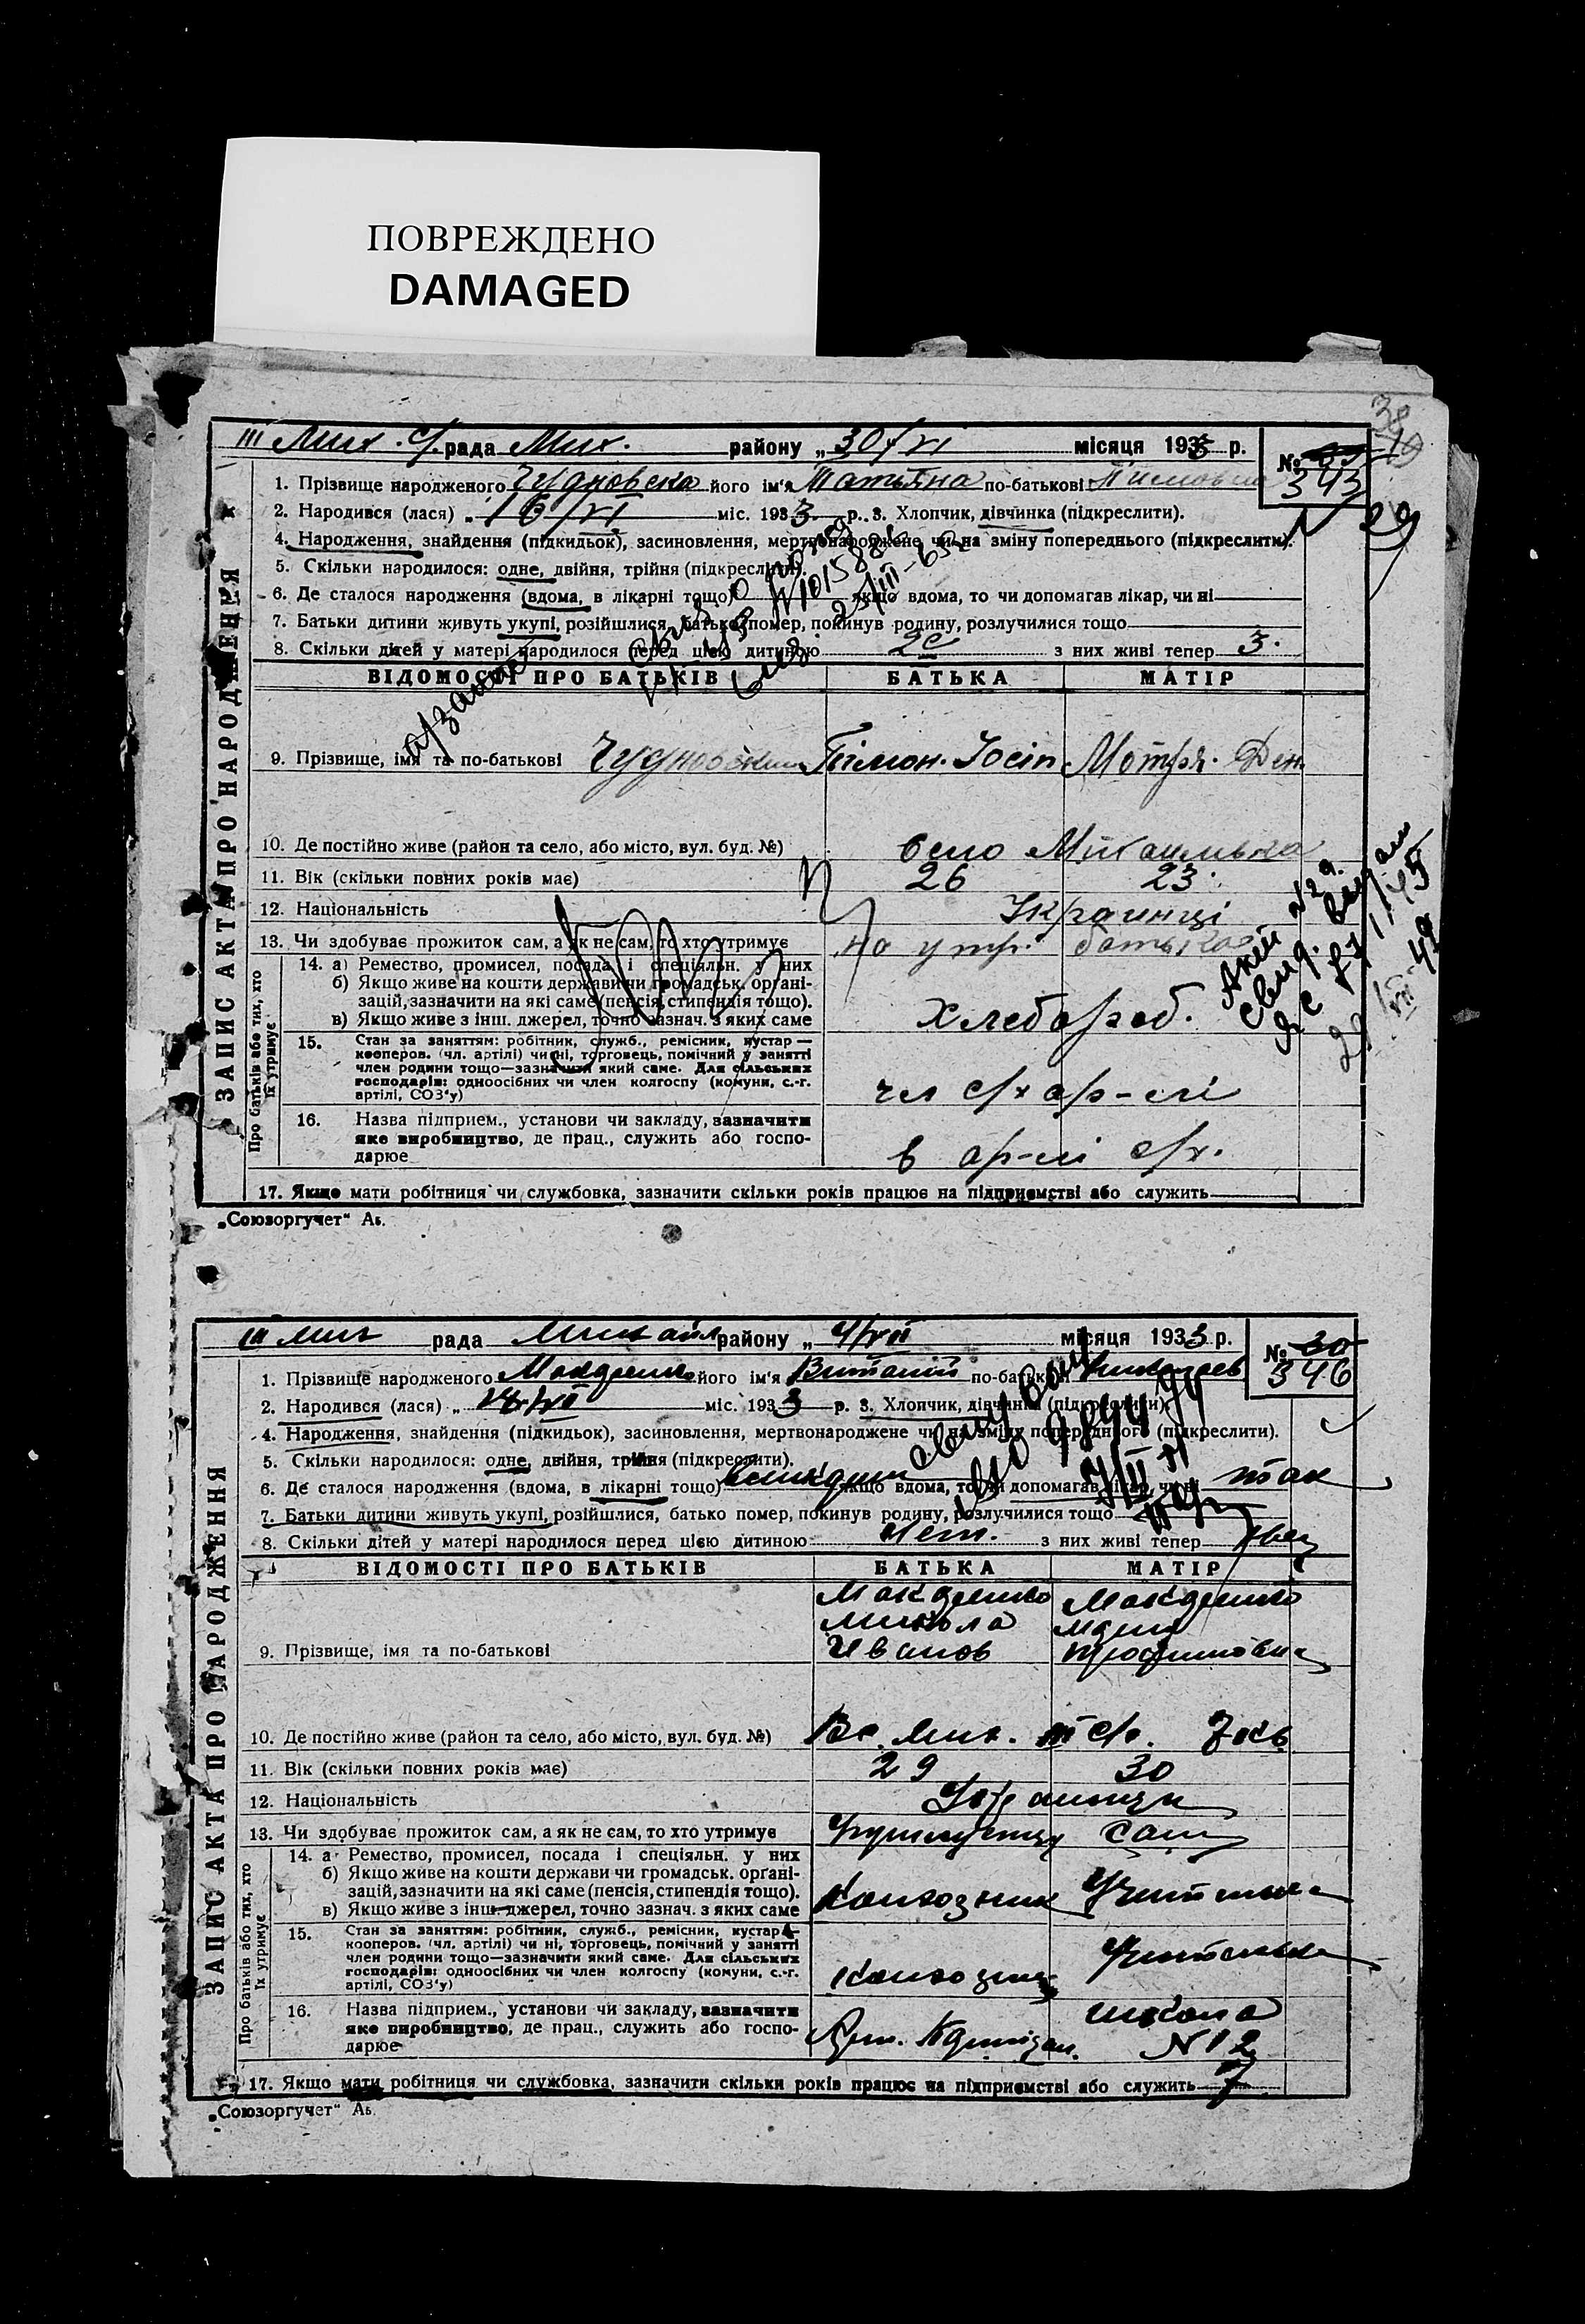 ПОВРЕЖДЕНО
DAMAGED
III Мих. с/рада Мих. району „30/VI місяця 1933 р.
№ 343
N 29
1. Прізвище народженого Чудновська його ім'я Татьяна по-батькові
2. Народився (лася) „ 16/VI міс. 1933 р. 3. Хлопчик, дівчинка (підкреслити).
4. Народження, знайдення (підкидьок), засиновлення, мертвонароджене чи на зміну попереднього (підкреслити).
5. Скільки народилося: одне, двійня, трійня (підкреслити).
6. Де сталося народження (вдома, в лікарні тощо) якщо вдома, то чи допомагав лікар, чи ні
7. Батьки дитини живуть укупі, розійшлися, батько помер, покинув родину, розлучилися тощо
8. Скільки дітей у матері народилося перед цією дитиною 2є з них живі тепер 3.
ВІДОМОСТІ ПРО БАТЬКІВ БАТЬКА МАТІР
9. Прізвище, імя та по-батькові Чудновськи Тімон. Йосіп Мотря. Ден
10. Де постійно живе (район та село, або місто, вул. буд. №) село Михаильвка
11. Вік (скільки повних років має) 26 23
12. Національність Украинці
13. Чи здобуває прожиток сам, а як не сам, то хто утримує на утр. батька
Про батьків або тих, хто їх утримує
14. а) Ремество, промисел, посада і спеціяльн. у них
б) Якщо живе на кошти держави чи громадськ. органі-
зацій, зазначити на які саме (пенсія, стипендія тощо).
в) Якщо живе з інш. джерел, точно зазнач. з яких саме
хлебороб.
15. Стан за заняттям: робітник, служб., ремісник, кустар—
кооперов. (чл. артілі) чи ні, торговець, помічний у занятті
член родини тощо—зазначити який саме. Для сільських
господарів: одноосібних чи член колгоспу (комуни, с.-г.
артілі, СОЗ'у)
чл с/х ар-лі
16. Назва підприєм., установи чи закладу, зазначити
яке виробництво, де прац., служить або госпо-
дарює
в ар-лі с/х.
17. Якщо мати робітниця чи службовка, зазначити скільки років працює на підприємстві або служить
ЗАПИС АКТА ПРО НАРОДЖЕННЯ
„Союзоргучет“ Аб.
III Мих рада Михайл району „ 4/VII місяця 1933 р.
№ 30
346
1. Прізвище народженого його ім'я Виталий по-батькові Николаев
2. Народився (лася) „ міс. 1933 р. 3. Хлопчик, дівчинка (підкреслити).
4. Народження, знайдення (підкидьок), засиновлення, мертвонароджене чи на зміну попереднього (підкреслити).
5. Скільки народилося: одне, двійня, трійня (підкреслити).
6. Де сталося народження (вдома, в лікарні тощо) якщо вдома, то чи допомагав лікар, чи ні так
7. Батьки дитини живуть укупі, розійшлися, батько помер, покинув родину, розлучилися тощо
8. Скільки дітей у матері народилося перед цією дитиною нет. з них живі тепер
ВІДОМОСТІ ПРО БАТЬКІВ БАТЬКА МАТІР
9. Прізвище, імя та по-батькові
Микола Иванов
Мария Трофимовна
10. Де постійно живе (район та село, або місто, вул. буд. №)
11. Вік (скільки повних років має) 29 30
12. Національність Украинци
13. Чи здобуває прожиток сам, а як не сам, то хто утримує
Про батьків або тих, хто їх утримує
14. а Ремество, промисел, посада і спеціяльн. у них
б) Якщо живе на кошти держави чи громадськ. органі-
зацій, зазначити на які саме (пенсія, стипендія тощо).
в) Якщо живе з інш. джерел, точно зазнач. з яких саме
Колгозник Учителька
15. Стан за заняттям: робітник, служб., ремісник, кустар—
кооперов. (чл. артілі) чи ні, торговець, помічний у занятті
член родини тощо—зазначити який саме. Для сільських
господарів: одноосібних чи член колгоспу (комуни, с.-г.
артілі, СОЗ'у)
Колгозник Учителька
16. Назва підприєм., установи чи закладу, зазначити
яке виробництво, де прац., служить або госпо-
дарює
школа
N 12
17. Якщо мати робітниця чи службовка, зазначити скільки років працює на підприємстві або служить 7
ЗАПИС АКТА ПРО НАРОДЖЕННЯ
„Союзоргучет“ Аб.